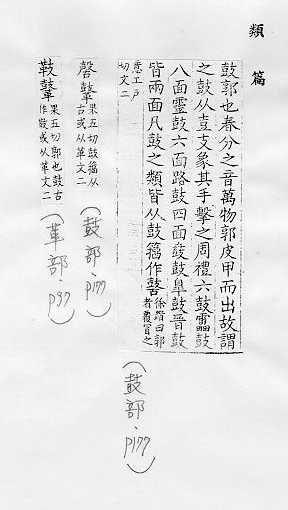 類篇
鼓郭也春分之音萬物郭皮甲而出故謂
之鼓从壴支象其手擊之周禮六鼓靁鼓
八面靈鼓六面路鼓四面鼖鼓皐鼓晉鼓
皆兩面凡鼓之類皆从鼓籒作𪔐徐鍇曰郭者覆冒之
悉工戶切文二
(鼓部、p177)
果五切鼓籒从古或从革文二
(鼓部、p177)
果五切郭也鼓古作鼓或从革文二
(革部、p97)